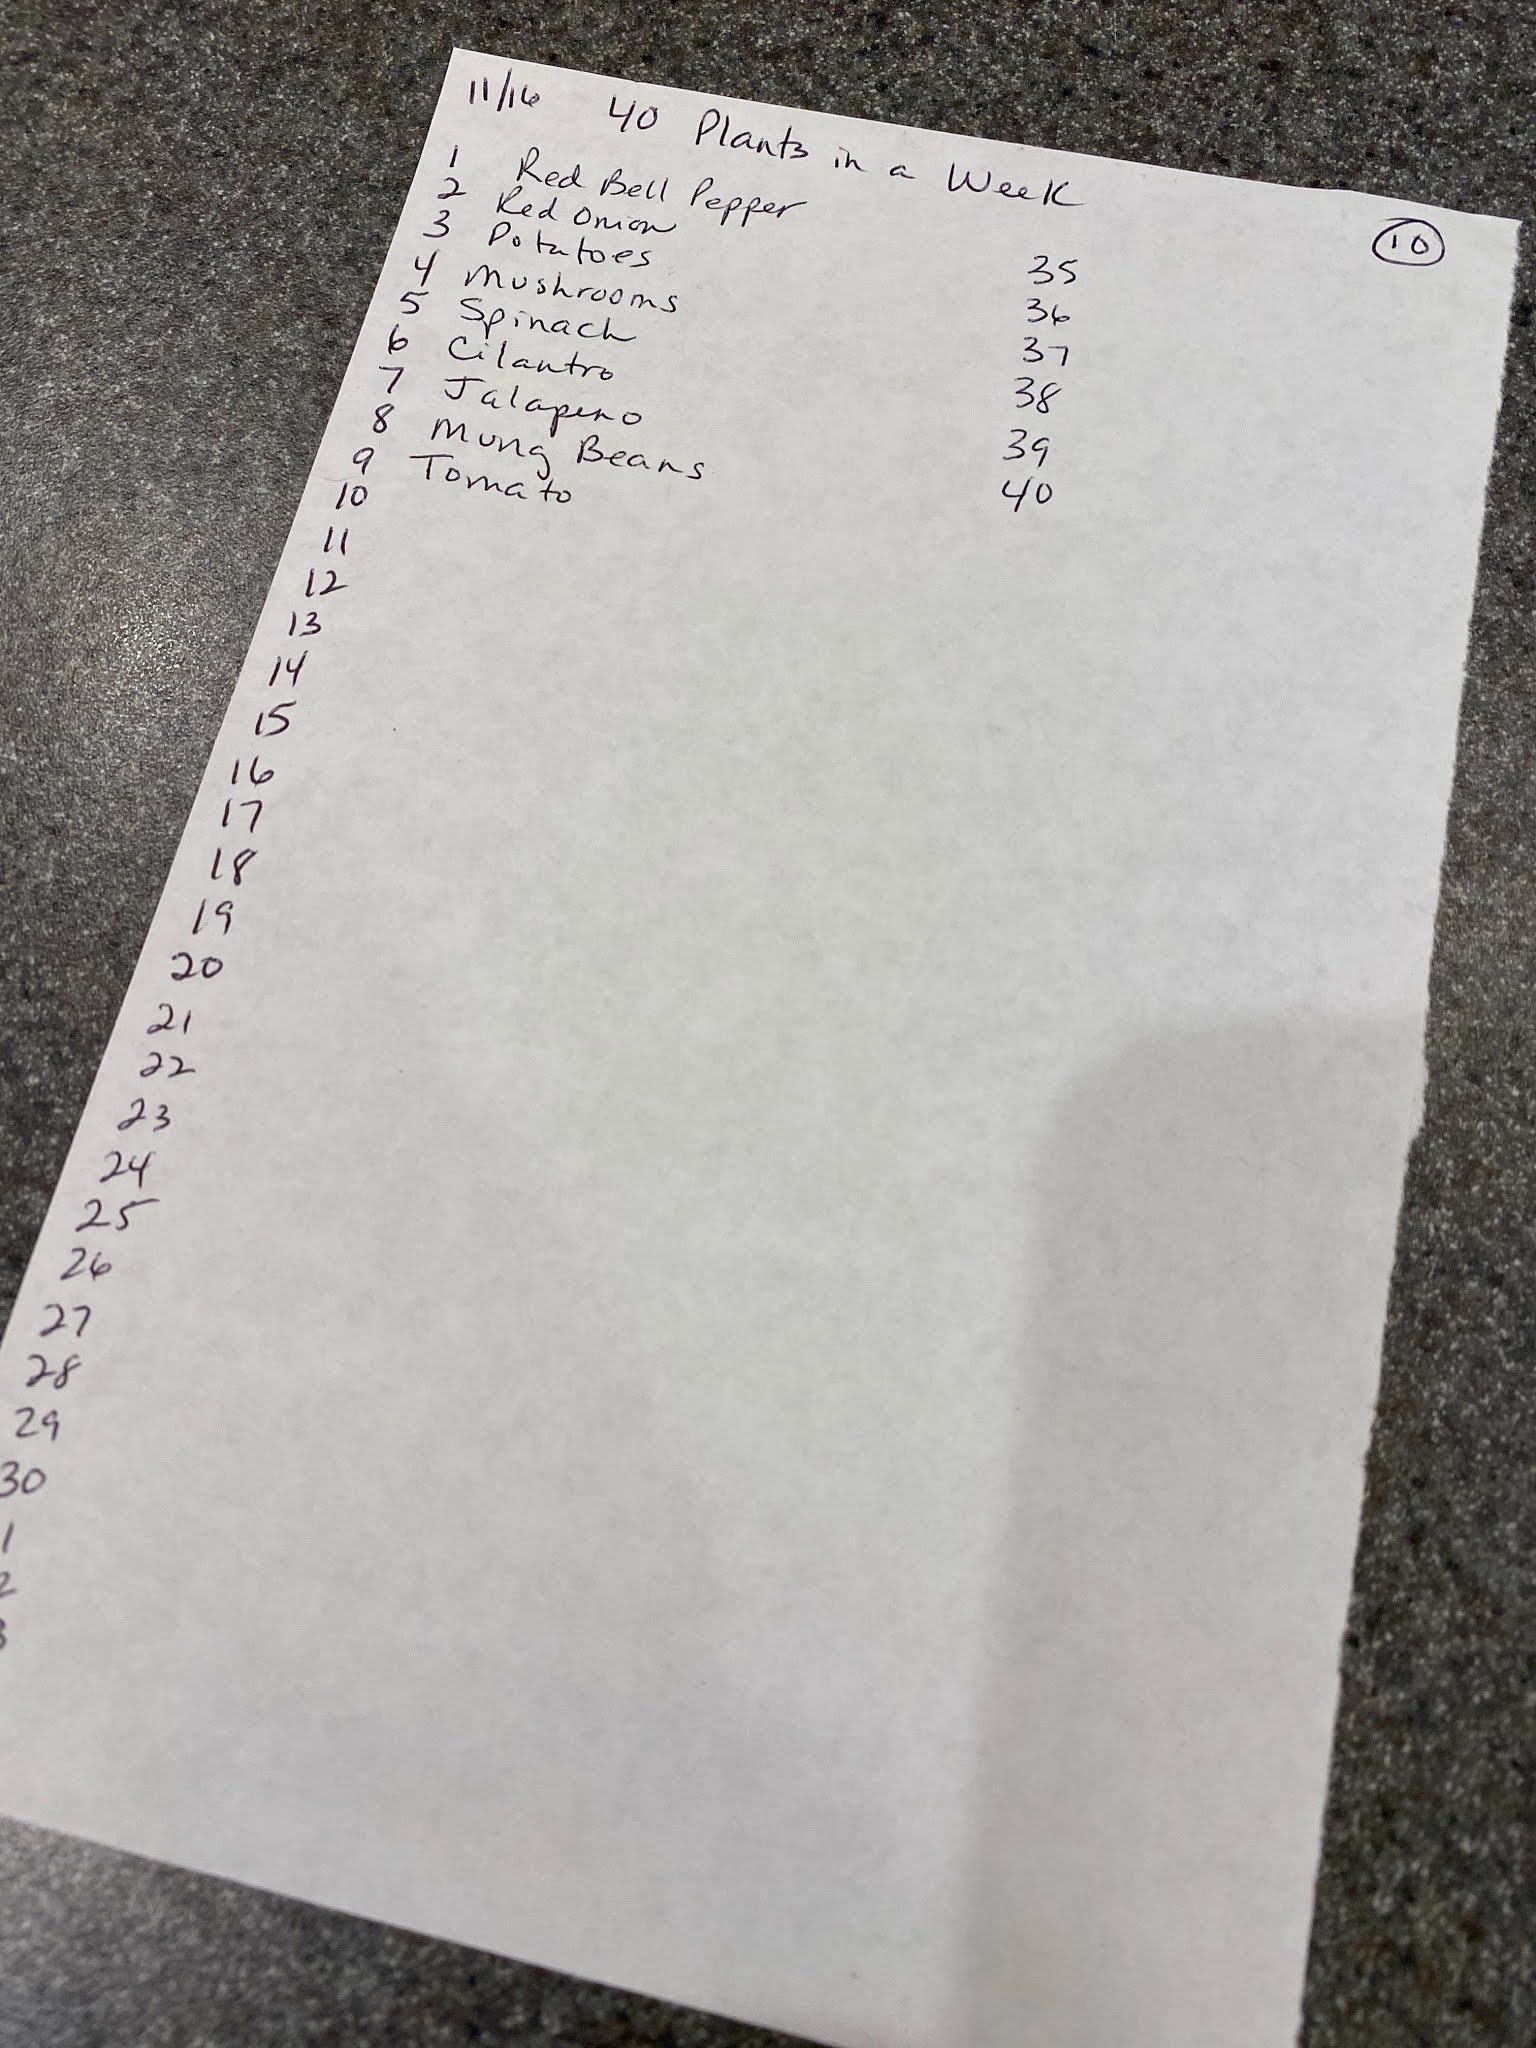 11/16 40 Plants in a Week
10
1 Red Bell Pepper
2 Red Onion
3 Potatoes
4 Mushrooms
5 Spinach
6 Cilantro
7 Jalapeno
8 Mung Beans
9 Tomato
10
11
12
13
14
15
16
17
18
19
20
21
22
23
24
25
26
27
28
29
30
1
2
3
35
36
37
38
39
40